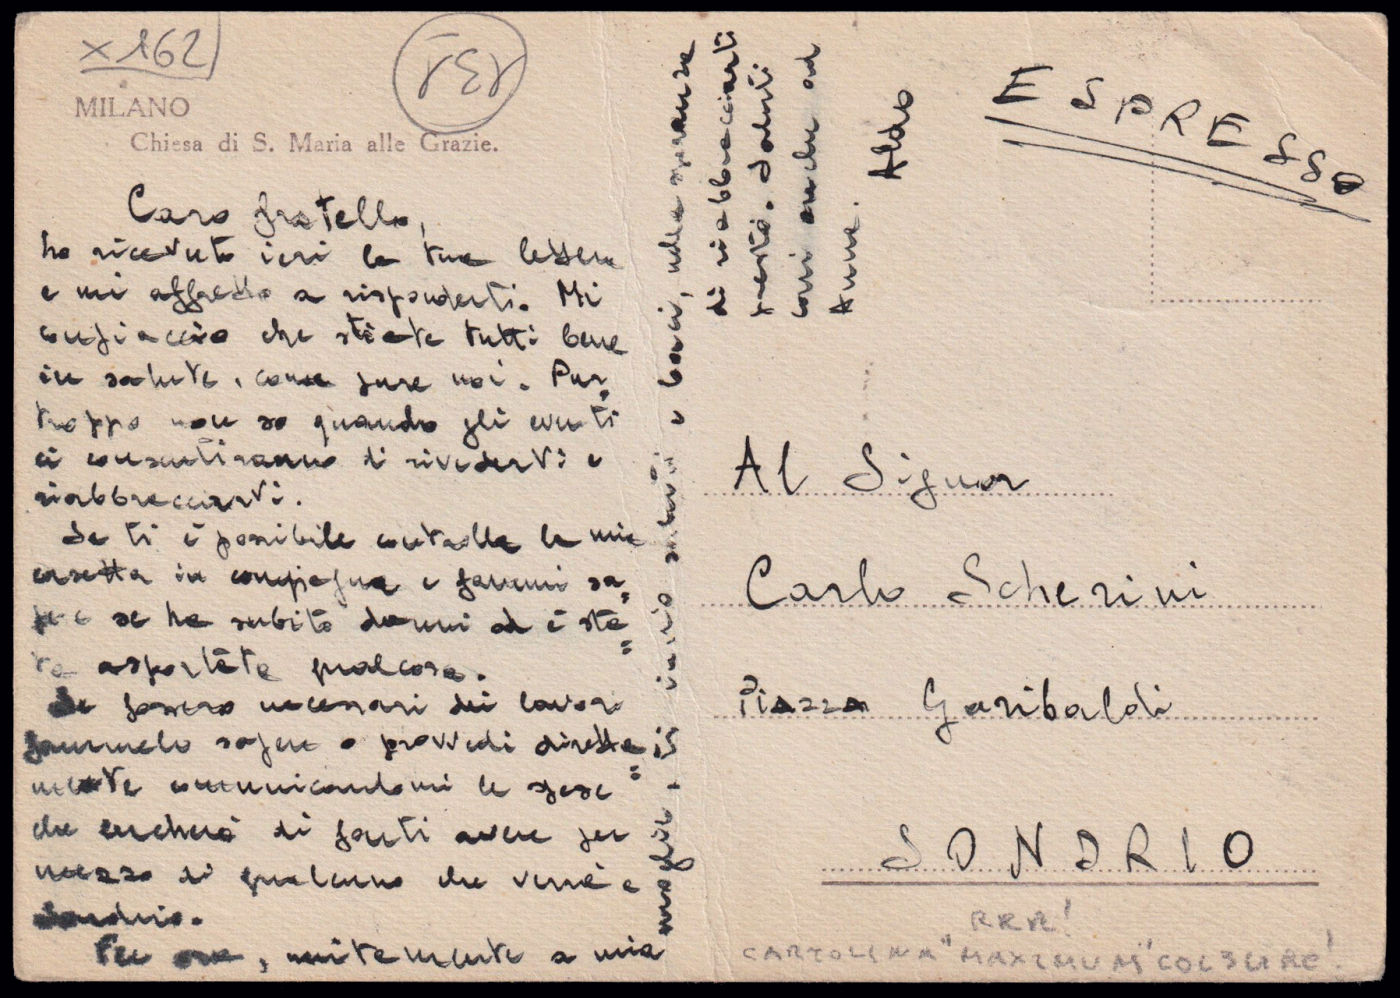 x 162
MILANO
Chiesa di S. Maria alle Grazie.
Caro fratello,
ho ricevuto ieri la tua lettera
e mi affretto a risponderti. Mi
compiaccio che stiate tutti bene
in salute, come pure noi. Pur=
troppo non so quando gli eventi
ci consentiranno di rivedervi e
riabbracciarvi.
Se ti è possibile controlla la mia
casetta in campagna e fammi sa=
pere se ha subito danni od è sta=
ta asportata qualcosa.
Se fossero necessari dei lavori
fammelo sapere o provvedi diretta=
mente comunicandomi le spese
che cercherò di farti avere per
mezzo di qualcuno che verrà a
Sondrio.
Per ora, unitamente a mia
moglie, vi invio saluti e baci, nella speranza
di riabbracciarti
presto. Saluti
cari anche ad
Anna.
Aldo
ESPRESSO
Al Signor
Carlo Scherini
Piazza Garibaldi
SONDRIO
RRR!
CARTOLINA "MAXIMUM"